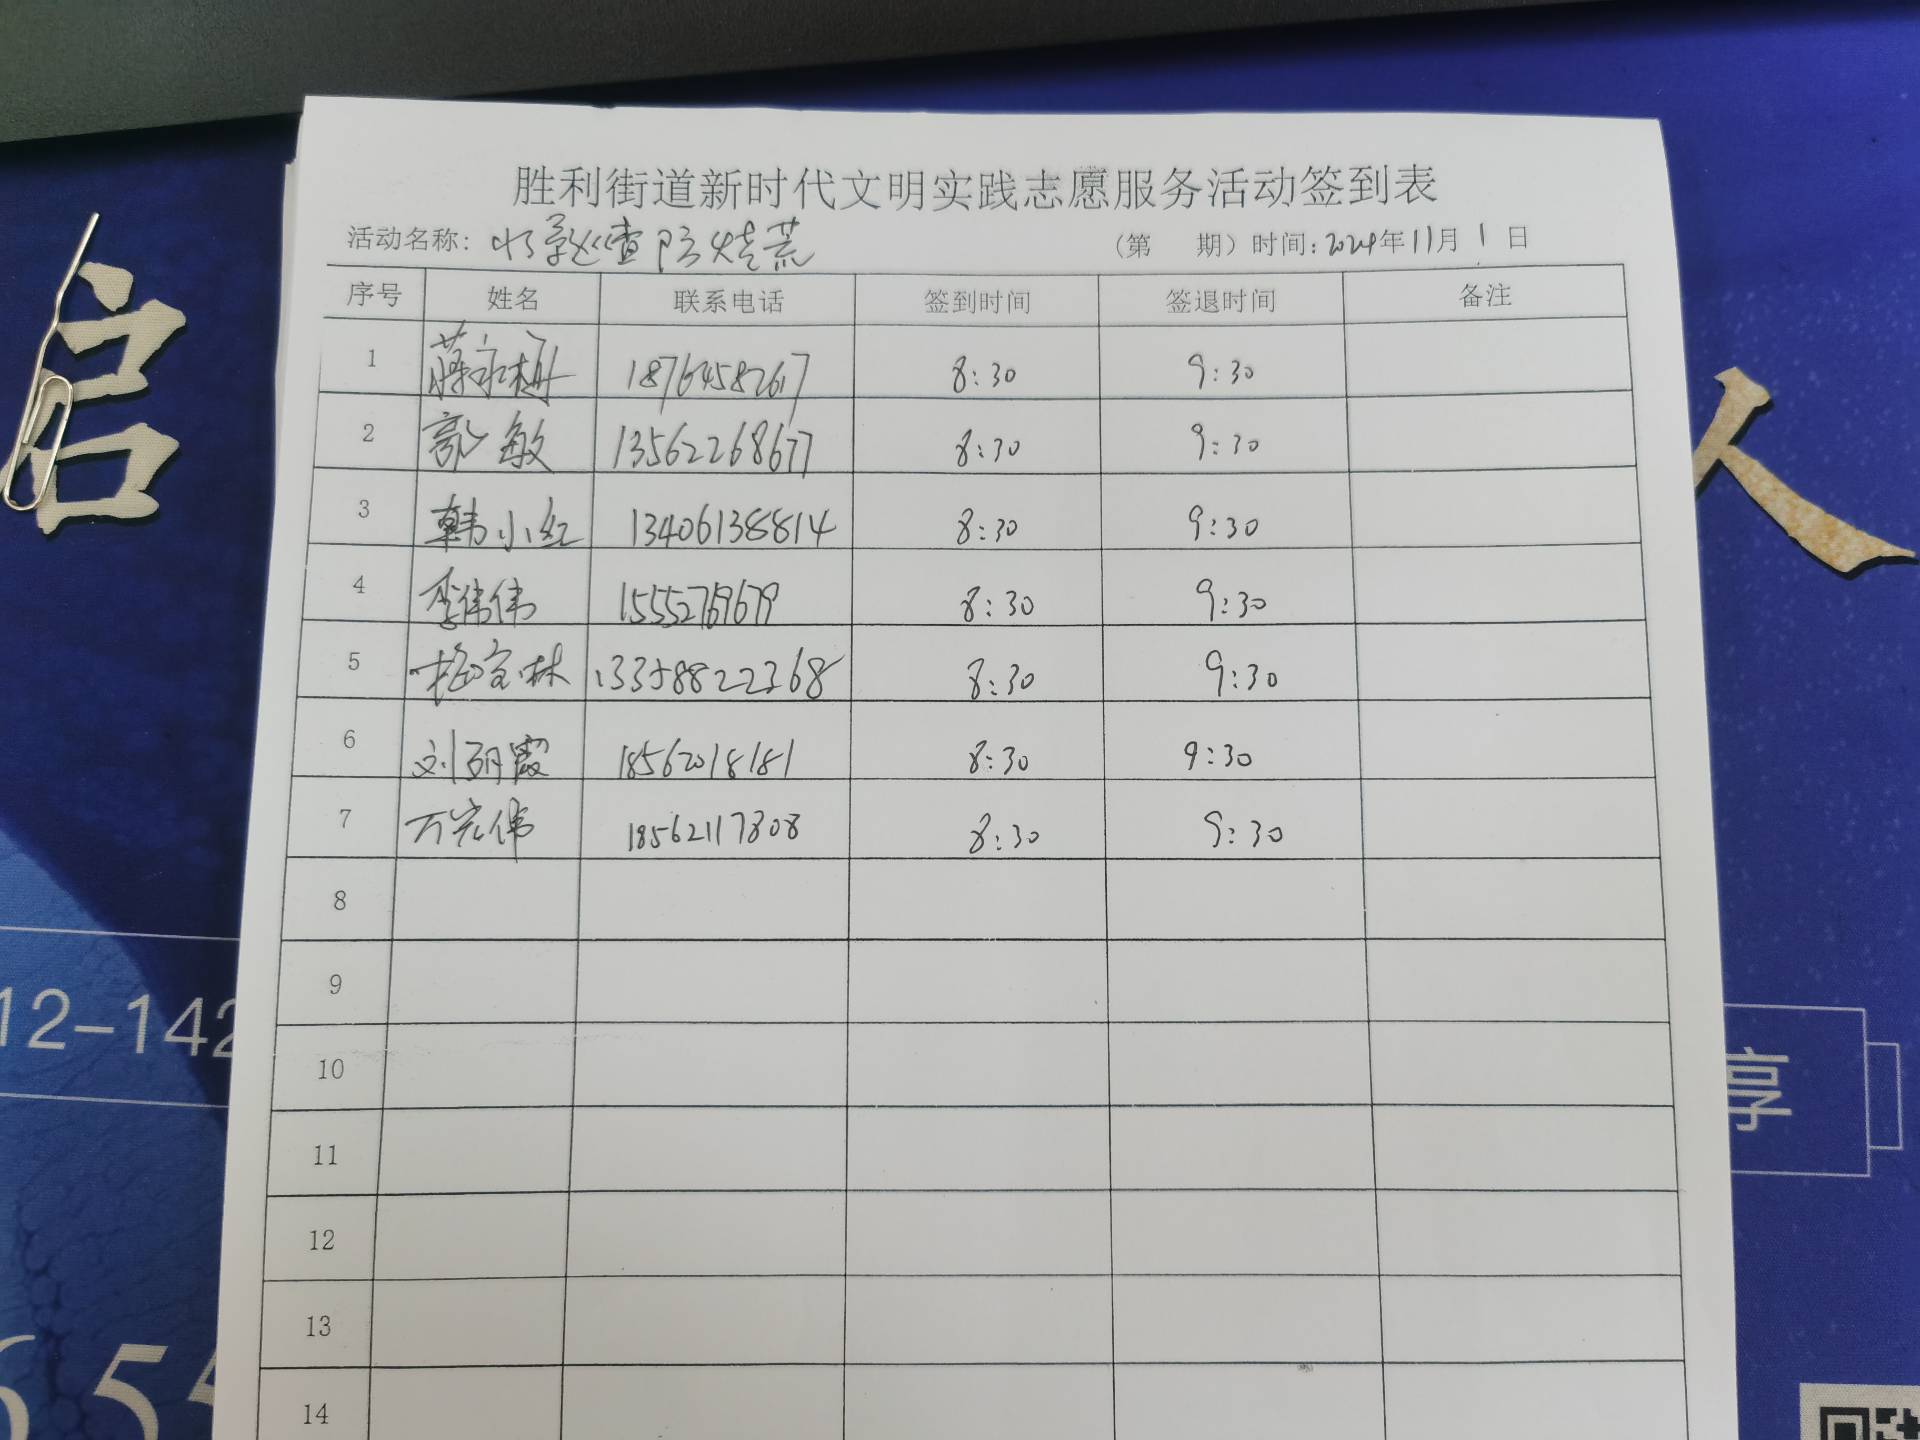 胜利街道新时代文明实践志愿服务活动签到表
活动名称： 巡查防烧荒 （第 期）时间：2024年11月1日
序号 姓名 联系电话 签到时间 签退时间 备注
1 蒋永梅 18764582617 8:30 9:30
2 郭敏 13562268677 8:30 9:30
3 韩小红 13406138814 8:30 9:30
4 李伟伟 15552769679 8:30 9:30
5 杨宝林 13358822368 8:30 9:30
6 刘丽霞 18562018181 8:30 9:30
7 万宏伟 18562117808 8:30 9:30
8
9
10
11
12
13
14
启
人
12-142
享
6 55